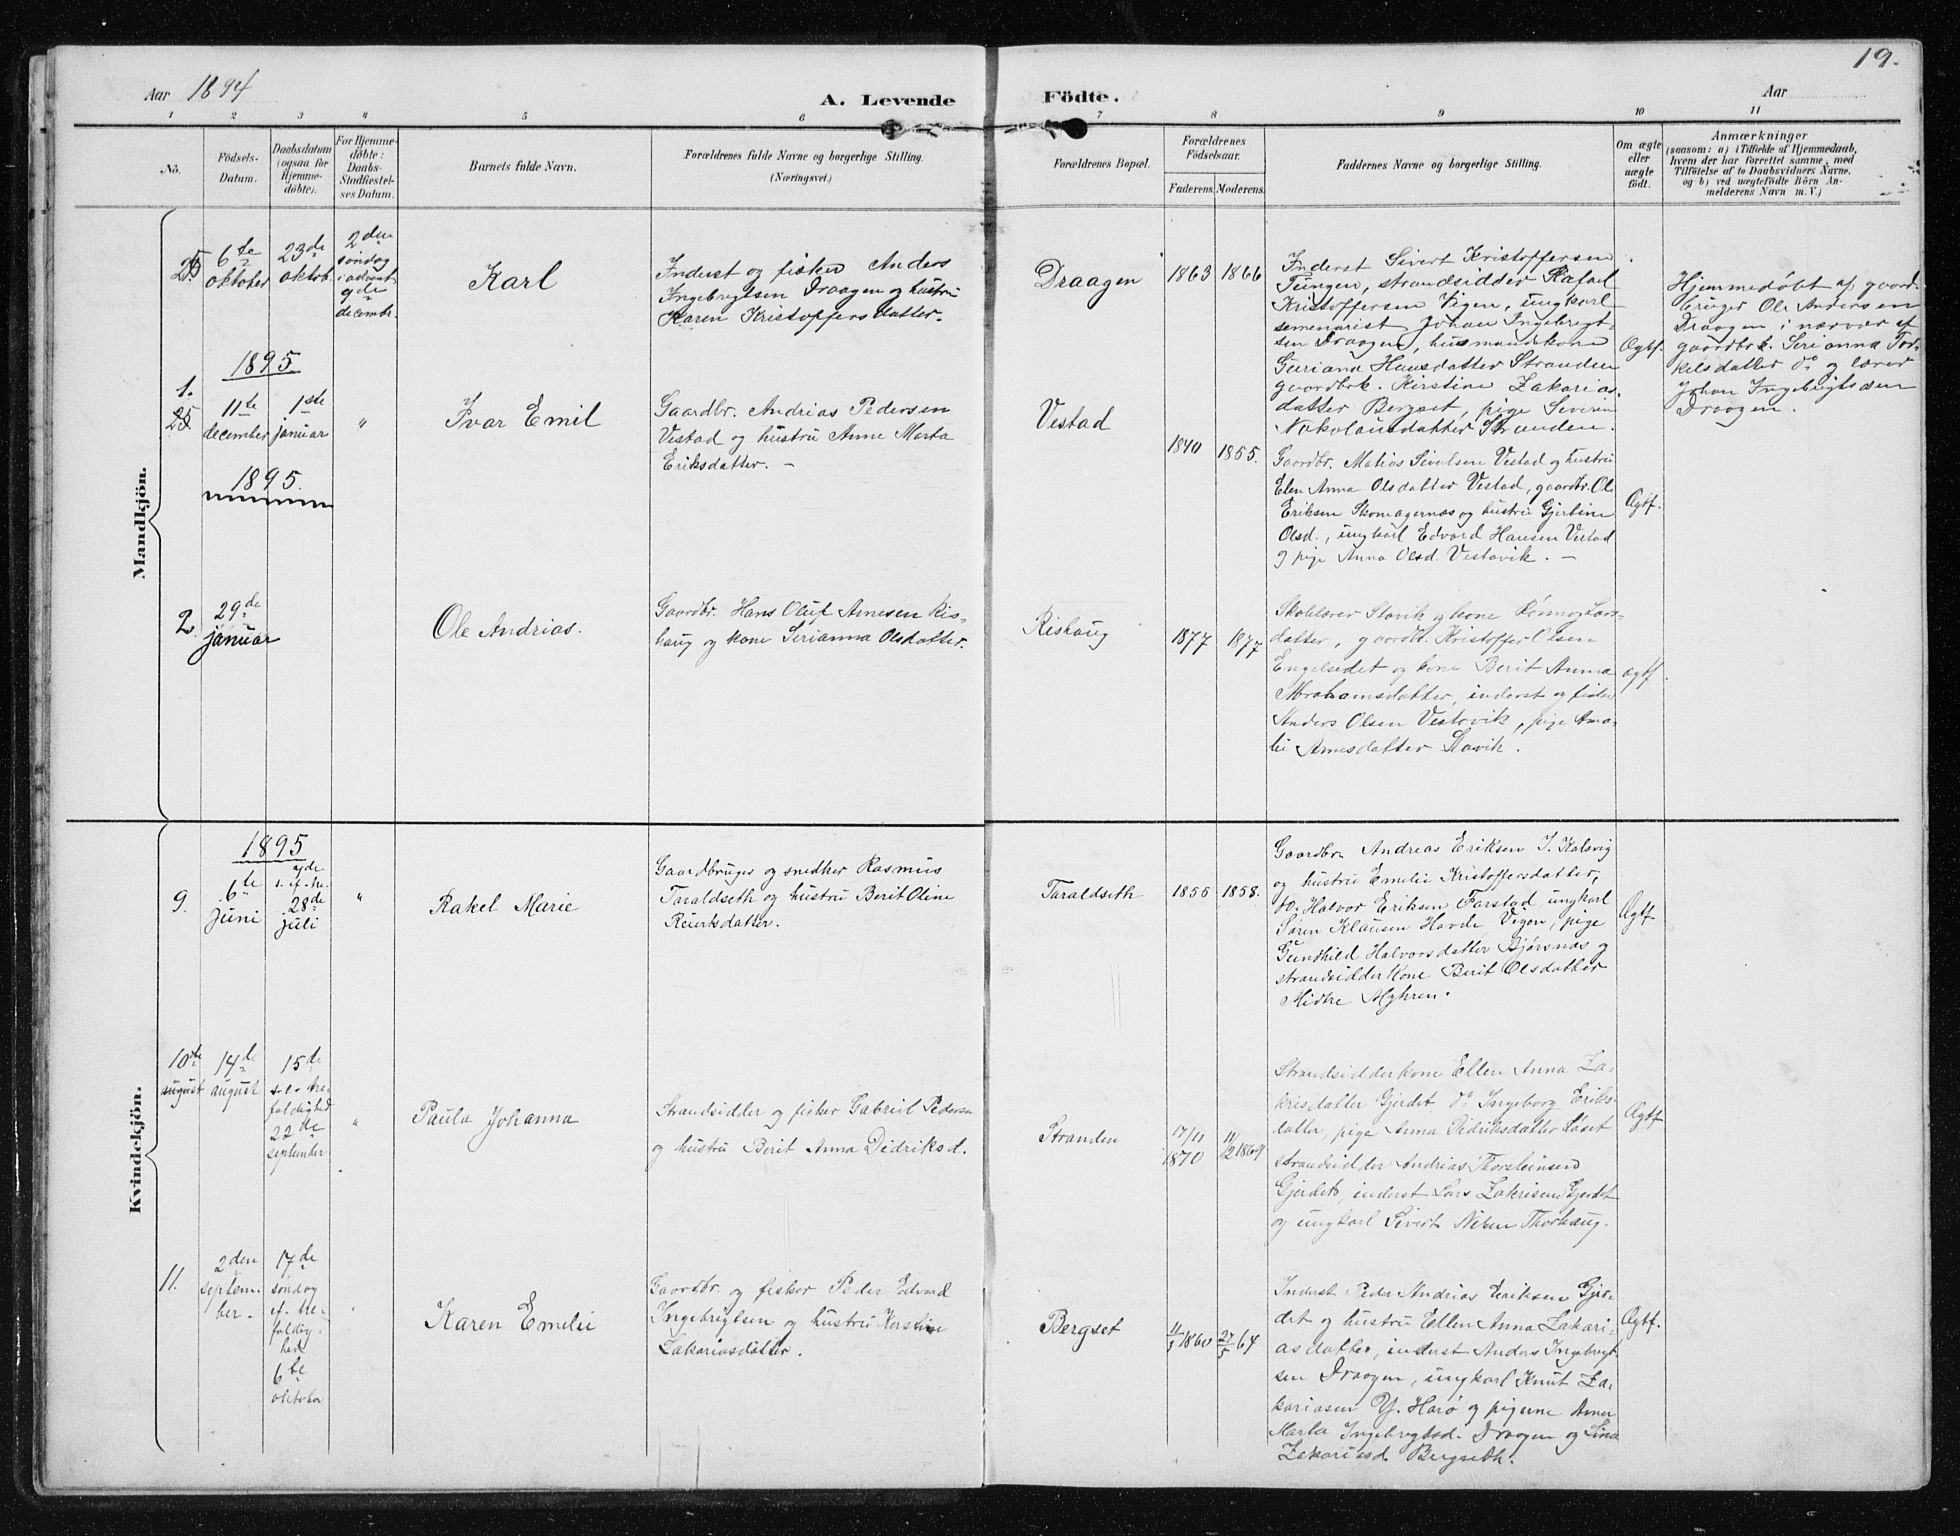 19.
Aar 1894
A. Levende Födte.
Aar
1 2 3 4 5 6 7 8 9 10 11
No.
Födsels-Datum.
Daabsdatum (ogsaa for Hjemme-döbte).
For Hjemme-döbte: Daabs-Stadfæstel-ses Datum.
Barnets fulde Navn.
Forældrenes fulde Navne og borgerlige Stilling. (Næringsvei.)
Forældrenes Bopæl.
Forældrenes Födselsaar.
Faderens. Moderens.
Faddernes Navne og borgerlige Stilling.
Om ægte eller uægte födt.
Anmærkninger
(saasom: a) i Tilfælde af Hjemmedaab, hvem der har forrettet samme, med Tilföielse af to Daabsvidners Navne, og b) ved uægtefödte Börn An-melderens Navn m. V.)
Mandkjön.
25
6te oktober
23de oktob.
2den søndag i advent 9de decembr.
Karl
Inderst og fisker Anders
Ingebrigtsen Draagen og hustru
Karen Kristoffersdatter.
Draagen
1863 1866
Inderst Sivert Kristoffersen
Tungen, strandsidder Rafael
Kristoffersen Vigen, ungkarl
semenarist Johan Ingebrigt-
sen Draagen, husmandskone
Guriana Hansdatter Stranden
gaardbrk. Kirstine Zakarias
datter Bergset, pige Severin
Nikolausdatter Stranden.
Ægtf.
Hjemmedøbt af gaard-
bruger Ole Andersen
Draagen i nærvær af
gaardbrk. Serianna Tor-
kelsdatter do og lærer
Johan Ingebrigtsen
Draagen.
1895
1.
25
11te december
1ste januar
"
Ivar Emil
Gaardbr. Andrias Pedersen
Vestad og hustru Anne Marta
Eriksdatter. —
Vestad
1840 1855.
Gaardbr. Matias Sivertsen Vestad og hustru
Elen Anna Olsdatter Vestad, gaardbr. Ole
Eriksen Skomagernæs og hustru Gjertine
Olsd., ungkarl Edvard Hansen Vestad
og pige Anna Olsd. Vestavik. —
Ægtf.
1895.
2
29de januar
Ole Andrias.
Gaardbr. Hans Oluf Arnesen Ris-
haug og kone Serianna Olsdatter.
Rishaug
1877 1877
Skolelærer Stavik og kone Rønnog Lars-
datter, gaardbr. Kristoffer Olsen
Engelsidet og kone Berit Anna
Abrahamsdatter, inderst og fisker
Anders Olsen Vestavik, pige Ama-
lie Arnesdatter Stavik.
ægtf.
Kvindekjön.
1895
9.
6te Juni
7de s. ef. tre. 28de juli
"
Rakel Marie
Gaardbruger og snedker Rasmus
Taraldseth og hustru Berit Oline
Reiertsdatter.
Taraldseth
1856 1858.
Gaardbr. Andreas Eriksen I. Kalsvig
og hustru Emelie Kristoffersdatter,
do. Halvor Eriksen Farstad, ungkarl
Søren Klausen Havde Vigen, pige
Gundhild Halvorsdatter Bjørsnæs og
strandsidderkone Berit Olsdatter
Midtre Myhren.
Ægtf
10de august
14de august
15de s. e. tre-foldighed 22de september
"
Paula Johanna
Strandsidder og fisker Gabriel Pedersen
og hustru Berit Anna Didriksd.
Stranden
17/11 1870
11/12 1869
Strandsidderkone Ellen Anna Za-
krisdatter Gjerdet do Ingeborg Eriks-
datter, pige Anna Didriksdatter Løset
strandsidder Andrias Thorsteinsen
Gjerdet, inderst Lars Zakrisen Gjerdet
og ungkarl Sivert Nilsen Thorhaug.
Ægtf
11.
2den septem-ber.
17de søndag ef. tre-foldig-hed 6te oktober
"
Karen Emelie
Gaardbr. og fisker Peder Edvard
Ingebrigtsen og hustru Kerstine
Zakariasdatter.
Bergset
1860
64
Inderst Peder Andrias Eriksen Gjer-
det og hustru Ellen Anna Zakari-
asdatter, inderst Anders Ingebrigt-
sen Draagen, ungkarl Knut Za-
kariasen Y. Harø og pigerne Anne
Marta Ingebrigtsd. Draagen og Sina
Zakariasd. Bergseth.
Ægtf.